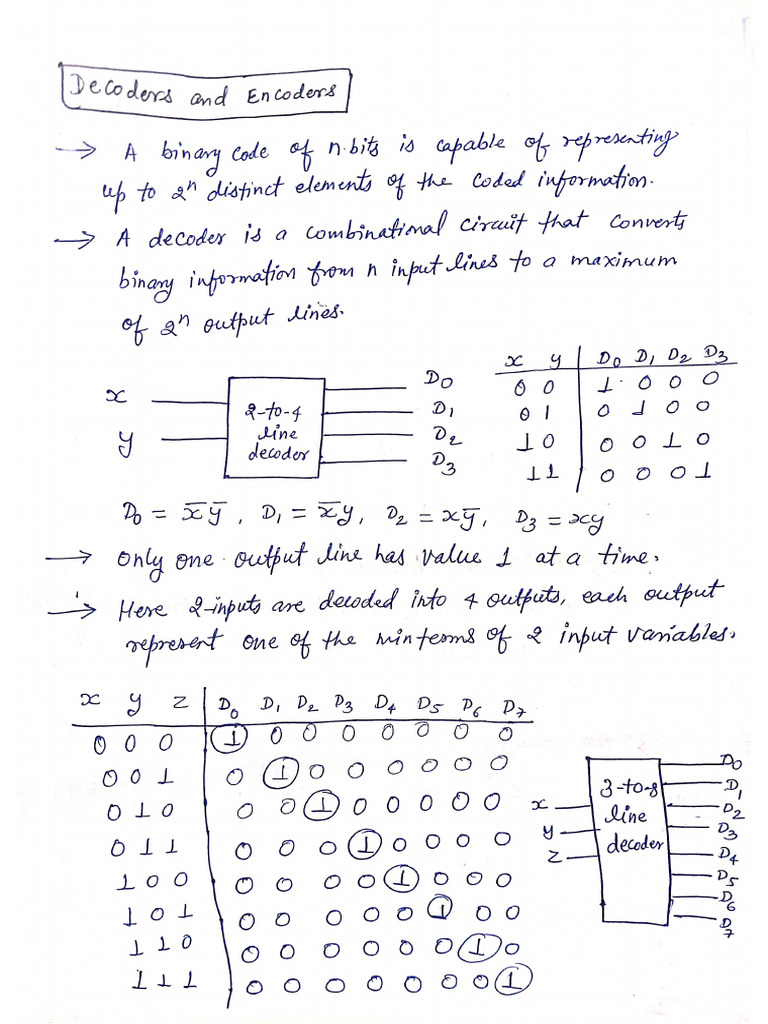 Decoders and Encoders
→ A binary code of n-bits is capable of representing
up to 2ⁿ distinct elements of the coded information.
→ A decoder is a combinational circuit that converts
binary information from n input lines to a maximum
of 2ⁿ output lines.
x
y
2-to-4
line
decoder
D0
D1
D2
D3
x y D0 D1 D2 D3
0 0 1 0 0 0
0 1 0 1 0 0
1 0 0 0 1 0
1 1 0 0 0 1
D0 = x̅y̅, D1 = x̅y, D2 = xy̅, D3 = xy
→ Only one output line has value 1 at a time.
→ Here 2-inputs are decoded into 4 outputs, each output
represent one of the minterms of 2 input variables.
x y z D0 D1 D2 D3 D4 D5 D6 D7
0 0 0 1 0 0 0 0 0 0 0
0 0 1 0 1 0 0 0 0 0 0
0 1 0 0 0 1 0 0 0 0 0
0 1 1 0 0 0 1 0 0 0 0
1 0 0 0 0 0 0 1 0 0 0
1 0 1 0 0 0 0 0 1 0 0
1 1 0 0 0 0 0 0 0 1 0
1 1 1 0 0 0 0 0 0 0 1
x
y
z
3-to-8
line
decoder
D0
D1
D2
D3
D4
D5
D6
D7